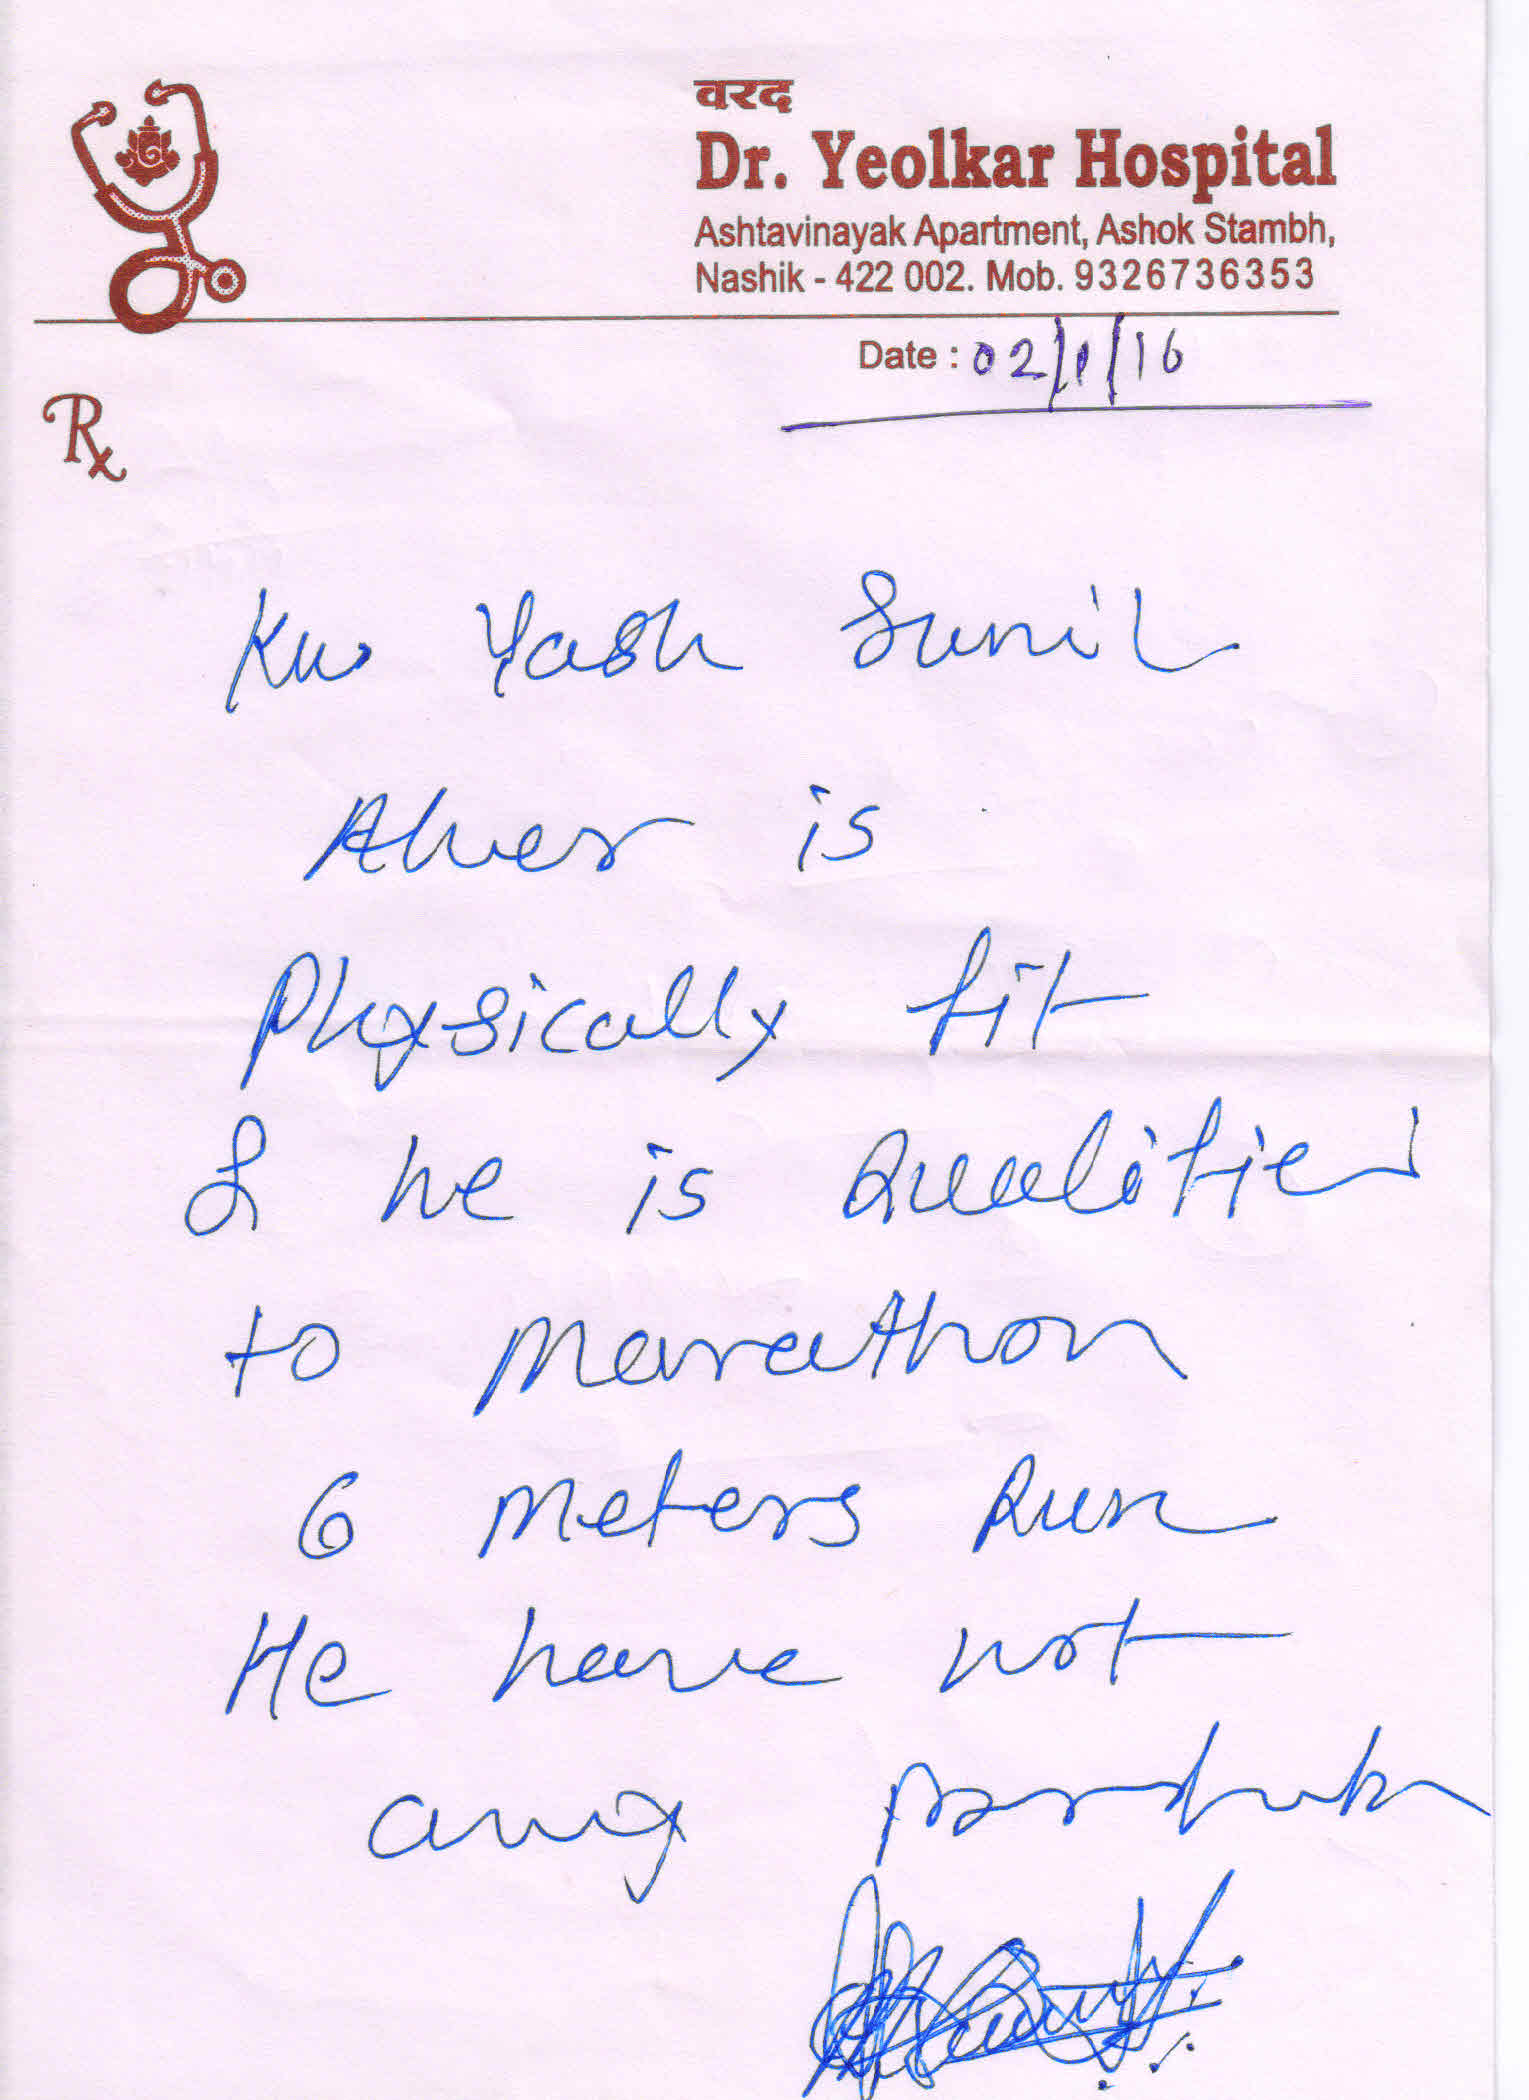 वरद
Dr. Yeolkar Hospital
Ashtavinayak Apartment, Ashok Stambh,
Nashik - 422 002. Mob. 9326736353
Date : 02/1/16
Rx
Ku. Yash Sunil
Aher is
Physically fit
& he is Qualified
to Marathon
6 Meters Run
He have not
any